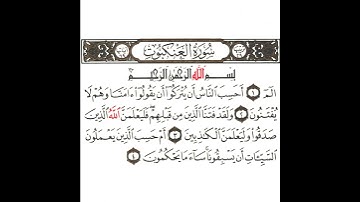 سورة العنكبوت
بسم الله الرحمن الرحيم
الٓمٓ ١ أَحَسِبَ ٱلنَّاسُ أَن يُتْرَكُوٓا۟ أَن يَقُولُوٓا۟ ءَامَنَّا وَهُمْ لَا
يُفْتَنُونَ ٢ وَلَقَدْ فَتَنَّا ٱلَّذِينَ مِن قَبْلِهِمْ فَلَيَعْلَمَنَّ ٱللَّهُ ٱلَّذِينَ
صَدَقُوا۟ وَلَيَعْلَمَنَّ ٱلْكَٰذِبِينَ ٣ أَمْ حَسِبَ ٱلَّذِينَ يَعْمَلُونَ
ٱلسَّيِّـَٔاتِ أَن يَسْبِقُونَا سَآءَ مَا يَحْكُمُونَ ٤